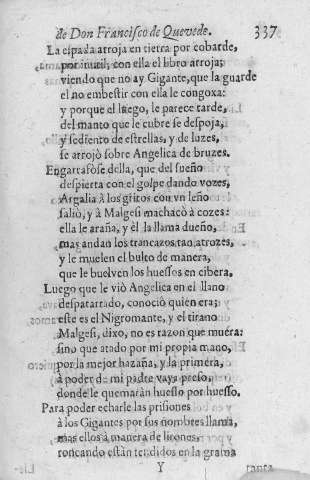 de Don Francisco de Quevedo. 337
La espada arroja en tierra por cobarde,
por inutil; con ella el libro arroja;
viendo que no ay Gigante, que la guarde
el no embestir con ella le congoxa:
y porque el luego, le parece tarde,
del manto que le cubre se despoja,
y sediento de estrellas, y de luzes,
se arrojò sobre Angelica de bruzes.
Engarrafòse della, que del sueño
despierta con el golpe dando vozes,
Argalia à los gritos con vn leño
saliò, y à Malgesi machacò à cozes:
ella le araña, y èl la llama dueño,
mas andan los trancazos tan atrozes,
y le muelen el bulto de manera,
que le buelven los huessos en cibera.
Luego que le viò Angelica en el llano
despatarrado, conociò quien era;
este es el Nigromante, y el tirano
Malgesi, dixo, no es razon que muera:
sino que atado por mi propia mano,
por la mejor hazaña, y la primera,
à poder de mi padre vaya preso,
donde le quemaràn huesso por huesso.
Para poder echarle las prisiones
à los Gigantes por sus nombres llama,
mas ellos à manera de lirones,
roncando estàn tendidos en la grama
Y tanta